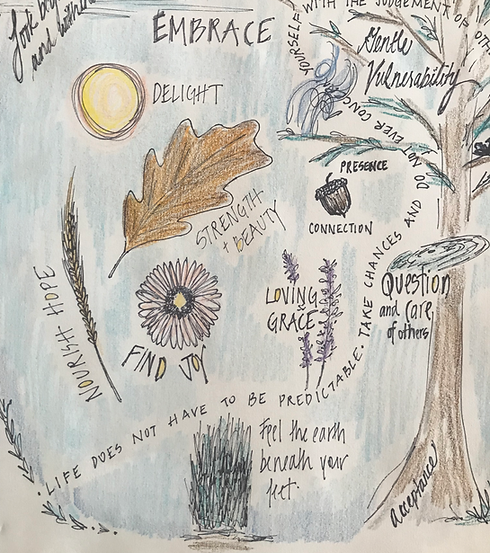 Look
and within
EMBRACE
DELIGHT
STRENGTH
+ BEAUTY
NOURISH HOPE
FIND JOY
LOVING
GRACE
PRESENCE
CONNECTION
Gentle
Vulnerability
Question
and care
of others
LIFE DOES NOT HAVE TO BE PREDICTABLE. TAKE CHANCES AND DO NOT EVER CONC
YOURSELF WITH THE JUDGEMENT OF OTH
Feel the earth
beneath your
feet.
Acceptance